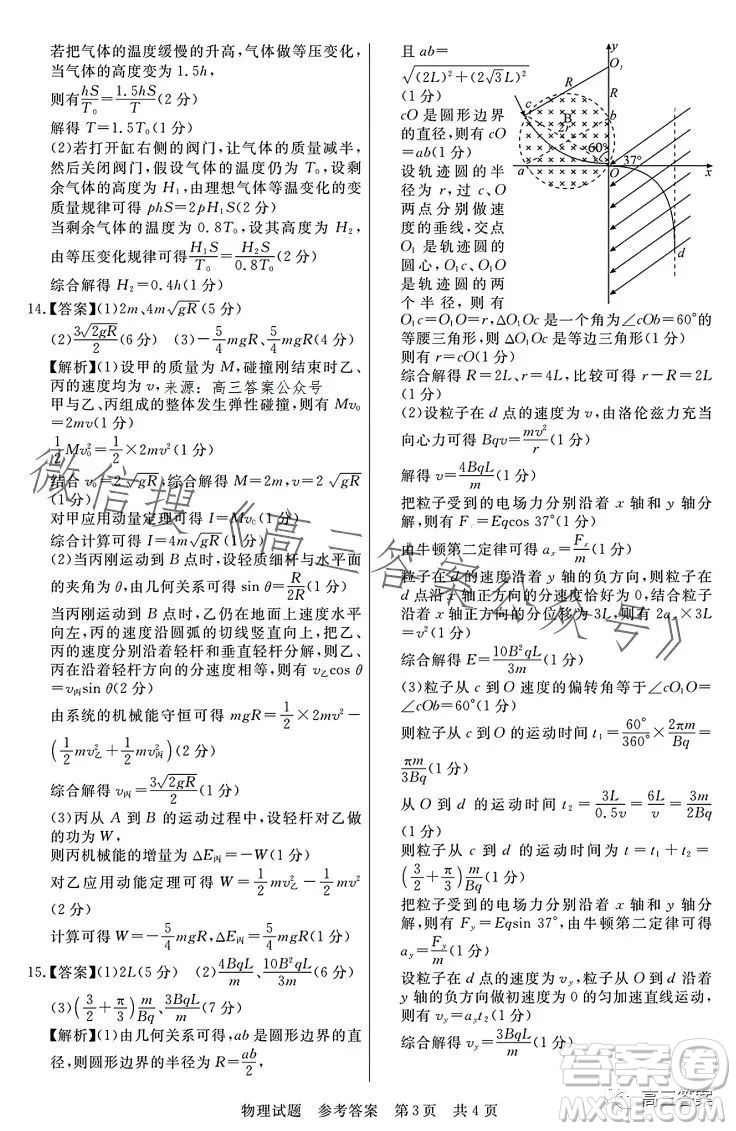 若把气体的温度缓慢的升高,气体做等压变化,
当气体的高度变为 1.5h,
则有hS/T₀=1.5hS/T(2 分)
解得 T=1.5T₀(1 分)
(2)若打开缸右侧的阀门,让气体的质量减半,
然后关闭阀门,假设气体的温度仍为 T₀,设剩
余气体的高度为 H₁,由理想气体等温变化的变
质量规律可得 phS=2pH₁S(2 分)
当剩余气体的温度为 0.8T₀,设其高度为 H₂,
由等压变化规律可得H₁S/T₀=H₂S/0.8T₀(2 分)
综合解得 H₂=0.4h(1 分)
14.【答案】(1)2m、4m√gR(5 分)
(2)3√2gR/2(6 分) (3)-5/4mgR、5/4mgR(4 分)
【解析】(1)设甲的质量为 M,碰撞刚结束时乙、
丙的速度均为 v,来源:高三答案公众号
甲与乙、丙组成的整体发生弹性碰撞,则有 Mv₀
=2mv(1 分)
1/2Mv₀²=1/2×2mv²(1 分)
结合 v₀=2√gR,综合解得 M=2m,v=2√gR
(1 分)
对甲应用动量定理可得 I=Mv₀(1 分)
综合计算可得 I=4m√gR(1 分)
(2)当丙刚运动到 B 点时,设轻质细杆与水平面
的夹角为 θ,由几何关系可得 sin θ=R/2R(1 分)
当丙刚运动到 B 点时,乙仍在地面上速度水平
向左,丙的速度沿圆弧的切线竖直向上,把乙、
丙的速度分别沿着轻杆和垂直轻杆分解,则乙、
丙在沿着轻杆方向的分速度相等,则有 v乙cos θ
=v丙sin θ(2 分)
由系统的机械能守恒可得 mgR=1/2×2mv²-
(1/2mv乙²+1/2mv丙²)(1 分)
综合解得 v丙=3√2gR/2(1 分)
(3)丙从 A 到 B 的运动过程中,设轻杆对乙做
的功为 W,
则丙机械能的增量为 ΔE丙=-W(1 分)
对乙应用动能定理可得 W=1/2mv乙²-1/2mv²
(2 分)
计算可得 W=-5/4mgR、ΔE丙=5/4mgR(1 分)
15.【答案】(1)2L(5 分) (2)4BqL/m、10B²qL/3m(6 分)
(3)(3/2+π/3)m/Bq、3BqL/m(7 分)
【解析】(1)由几何关系可得,ab 是圆形边界的直
径,则圆形边界的半径为 R=ab/2,
且 ab=
√(2L)²+(2√3L)²
(1 分)
cO 是圆形边界
的直径,则有 cO
=ab(1 分)
设轨迹圆的半
径为 r,过 c、O
两点分别做速
度的垂线,交点
O₁ 是轨迹圆的
圆心,O₁c、O₁O
是轨迹圆的两
个半径,则有
y
O₁
R
R
c
B
b
2r
60°
37°
a
O
x
d
O₁c=O₁O=r,ΔO₁Oc 是一个角为∠cOb=60°的
等腰三角形,即 ΔO₁Oc 是等边三角形(1 分)
则有 r=cO(1 分)
综合解得 R=2L、r=4L,比较可得 r-R=2L(1 分)
(2)设粒子在 d 点的速度为 v,由洛伦兹力充当
向心力可得 Bqv=mv²/r(1 分)
解得 v=4BqL/m(1 分)
把粒子受到的电场力分别沿着 x 轴和 y 轴分
解,则有 Fₓ=Eqcos 37°(1 分)
由牛顿第二定律可得 aₓ=Fₓ/m(1 分)
粒子在 d 的速度沿着 y 轴的负方向,则粒子到
d 点沿 x 轴正方向的分速度恰好为 0,结合粒子
沿着 x 轴正方向的分位移为 3L,则有 2aₓ×3L
=v²(1 分)
综合解得 E=10B²qL/3m(1 分)
(3)粒子从 c 到 O 速度的偏转角等于∠cO₁O=
∠cOb=60°(1 分)
则粒子从 c 到 O 的运动时间 t₁=60°/360°×2πm/Bq=
πm/3Bq(1 分)
从 O 到 d 的运动时间 t₂=3L/0.5v=6L/v=3m/2Bq
(1 分)
则粒子从 c 到 O 再到 d 的运动时间为 t=t₁+t₂=
(3/2+π/3)m/Bq(1 分)
把粒子受到的电场力分别沿着 x 轴和 y 轴分
解,则有 Fᵧ=Eqsin 37°,由牛顿第二定律可得
aᵧ=Fᵧ/m(1 分)
设粒子在 d 点的速度为 vᵧ,粒子从 O 到 d 沿着
y 轴的负方向做初速度为 0 的匀加速直线运动,
则有 vᵧ=aᵧt₂(1 分)
综合解得 vᵧ=3BqL/m(1 分)
微信搜《高三答案公众号》
答案卷
高三答案
MXQE.COM
物理试题 参考答案 第 3 页 共 4 页